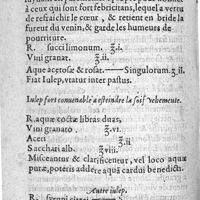 à ceux qui sont fort febricitans, lequel a vertu
de refraichir le cœur, & retient en bride la
fureur du venin, & garde les humeurs de
pourriture.
R. succi limonum. ℥.i.
Vini granat. ℥.ii.
Aque acetosæ & rosat.——Singulorum ℥ ii.
Fiat Iulep, veatur inter pastus.
Iulep fort conuenable à esteindre la soif vehemente.
R. aquæ coctæ libras duas,
Vini granato ℥.vi.
Aceti ℥.ii
Sacchari alb. ℥.viii.
Misceantur & clarificentur, vel loco aquæ
puræ, poteris addere aquā cardui benedicti.
Autre iulep.